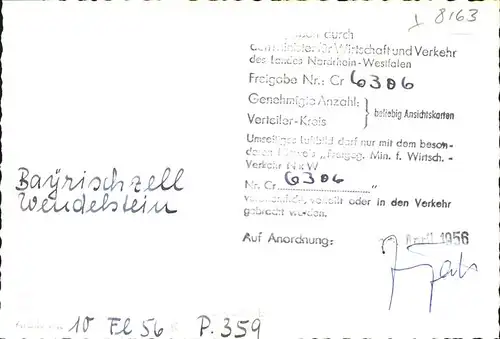 I 8163
durch
Minister für Wirtschaft und Verkehr
des Landes Nordrhein-Westfalen
Freigabe Nr.: Cr 6306
Genehmigte Anzahl: } beliebig Ansichtskarten
Verteiler-Kreis
Umseitiges Luftbild darf nur mit dem beson-
deren „Freigeg. Min. f. Wirtsch. -
Verkehr NRW
Nr. Cr 6306 "
vervielfältigt, verteilt oder in den Verkehr
gebracht werden.
Bayrischzell
Wendelstein
Auf Anordnung:
April 1956
10 Fl 56 P. 359